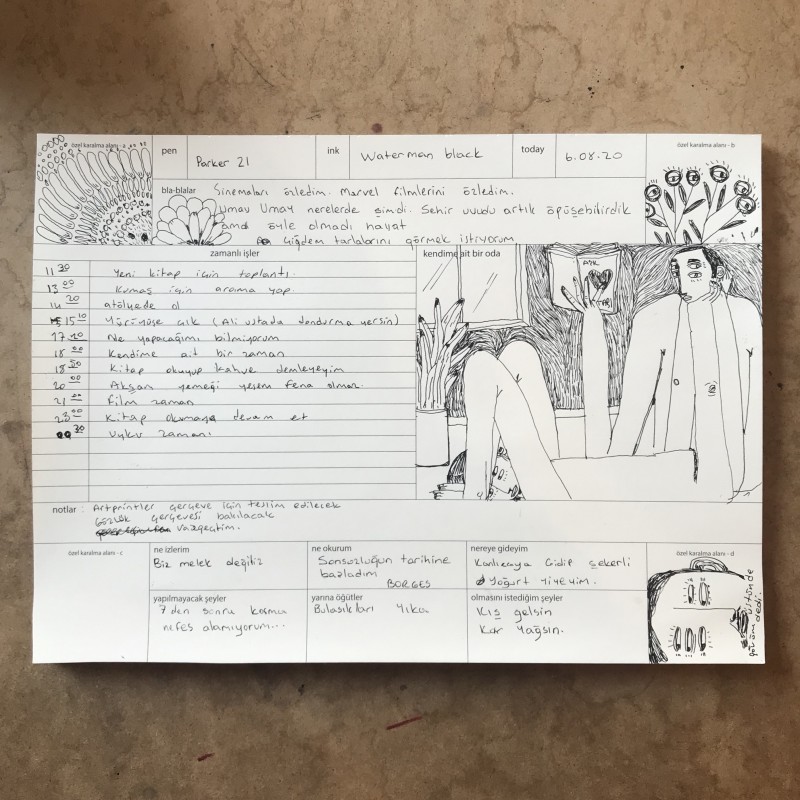 özel karalma alanı - a
pen
Parker 21
ink
Waterman black
today
6.08.20
özel karalma alanı - b
bla-blalar
Sinemaları özledim. Marvel filmlerini özledim.
Umay Umay nerelerde şimdi. Şehir uyudu artık öpüşebilirdik
ama öyle olmadı hayat
Çiğdem tarlalarını görmek istiyorum
zamanlı işler
11 30 Yeni kitap için toplantı.
13 00 Kumaş için arama yap.
14 20 atölyede ol
15 10 Yürüyüşe çık (Ali Ustada dondurma yersin)
17 10 Ne yapacağımı bilmiyorum
18 00 Kendime ait bir zaman
18 50 Kitap okuyup kahve demleyeyim
20 00 Akşam yemeği yesem fena olmaz.
21 00 film zamanı
23 00 Kitap okumaya devam et
00 30 uyku zamanı
kendime ait bir oda
AŞK
notlar : Artprintler çerçeve için teslim edilecek
Gözlük çerçevesi bakılacak
vazgeçtim.
özel karalma alanı - c
ne izlerim
Biz melek değiliz
ne okurum
Sonsuzluğun tarihine
başladım
BORGES
nereye gideyim
Kanlıcaya Gidip şekerli
Yoğurt yiyeyim.
özel karalma alanı - d
yapılmayacak şeyler
7 den sonra kosma
nefes alamıyorum...
yarına öğütler
Bulaşıkları Yıka
olmasını istediğim şeyler
Kış gelsin
Kar Yağsın.
gözüm üstünde
dedi.